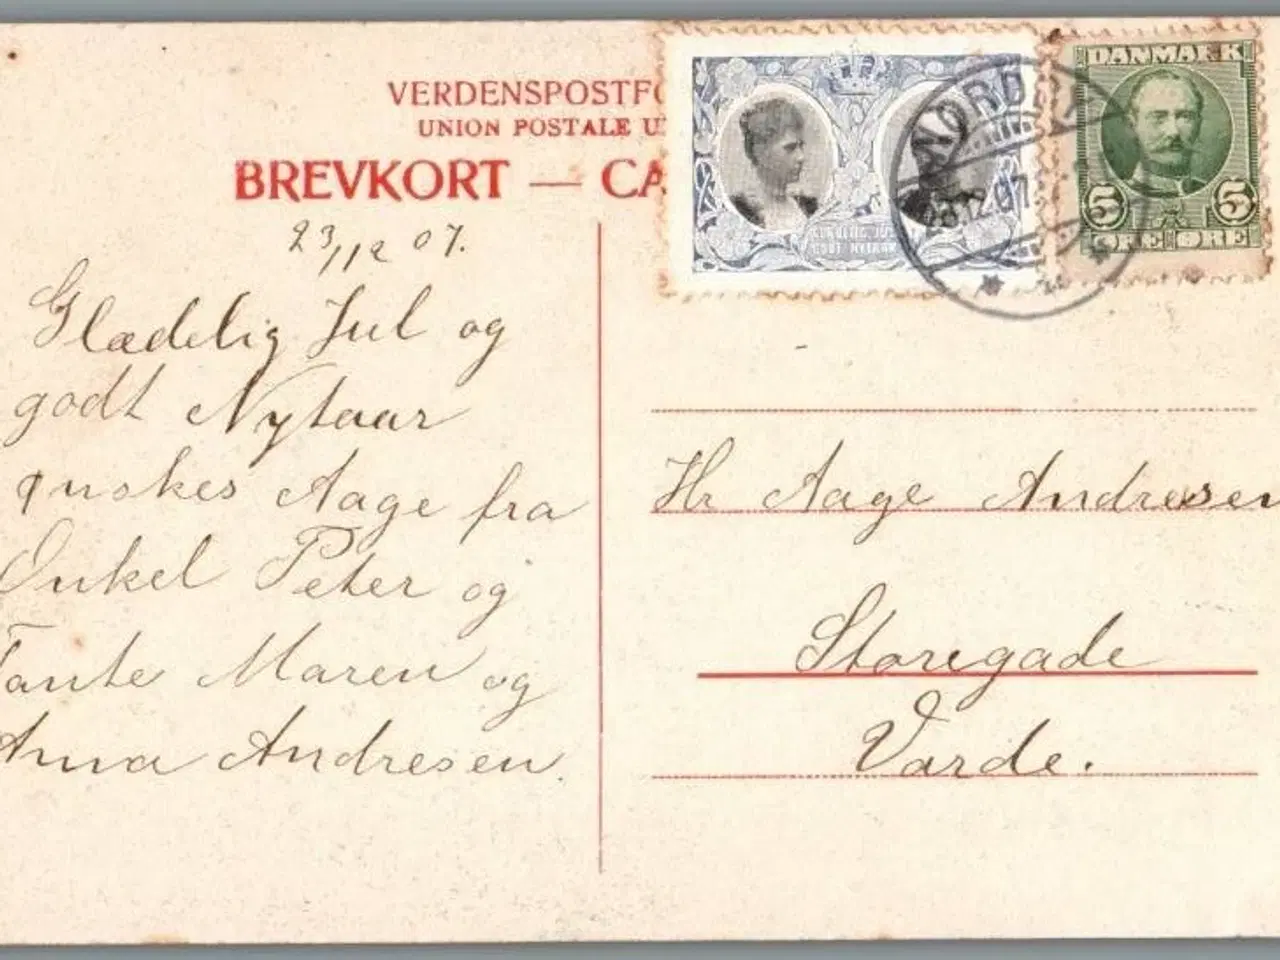 VERDENSPOSTFO
UNION POSTALE U
BREVKORT — CA
DANMARK
5 5
ØRE ØRE
GLÆDELIG JUL
GODT NYTAAR
NORDBY
23.12.07
23/12 07.
Glædelig Jul og
godt Nytaar
ønskes Aage fra
Onkel Peter og
Tante Maren og
Anna Andresen.
Hr Aage Andresen
Storegade
Varde.